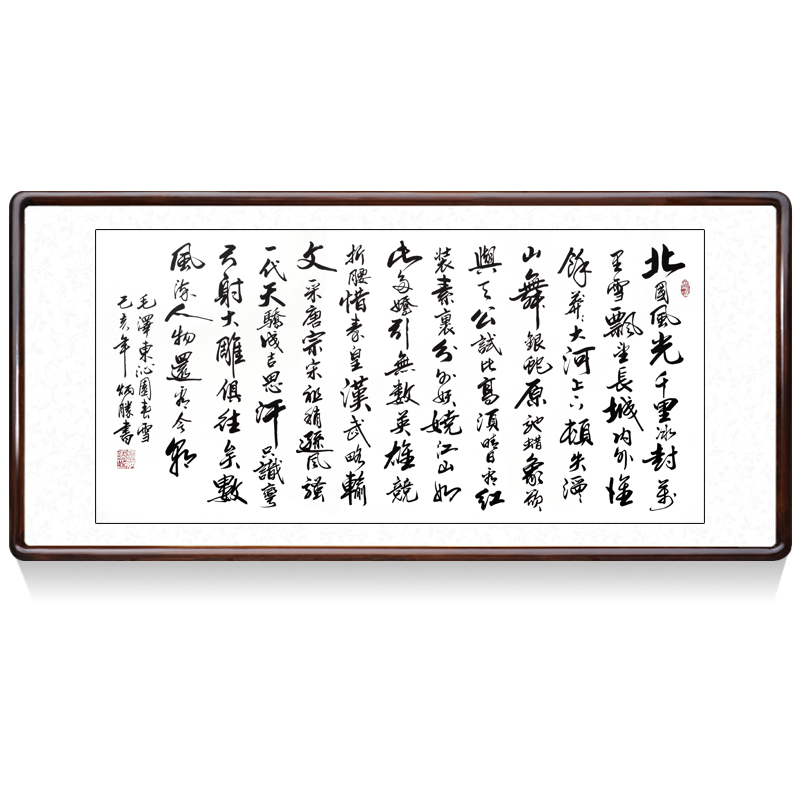 北國風光千里冰封萬
里雪飄望長城内外惟
餘莽々大河上下頓失滔々
山舞銀蛇原馳蜡象欲
與天公試比高須晴日看紅
裝素裹分外妖嬈江山如
此多嬌引無數英雄競
折腰惜秦皇漢武略輸
文采唐宗宋祖稍遜風騷
一代天驕成吉思汗只識彎
弓射大雕俱往矣數
風流人物還看今朝
毛澤東沁園春雪
己亥年炳勝書